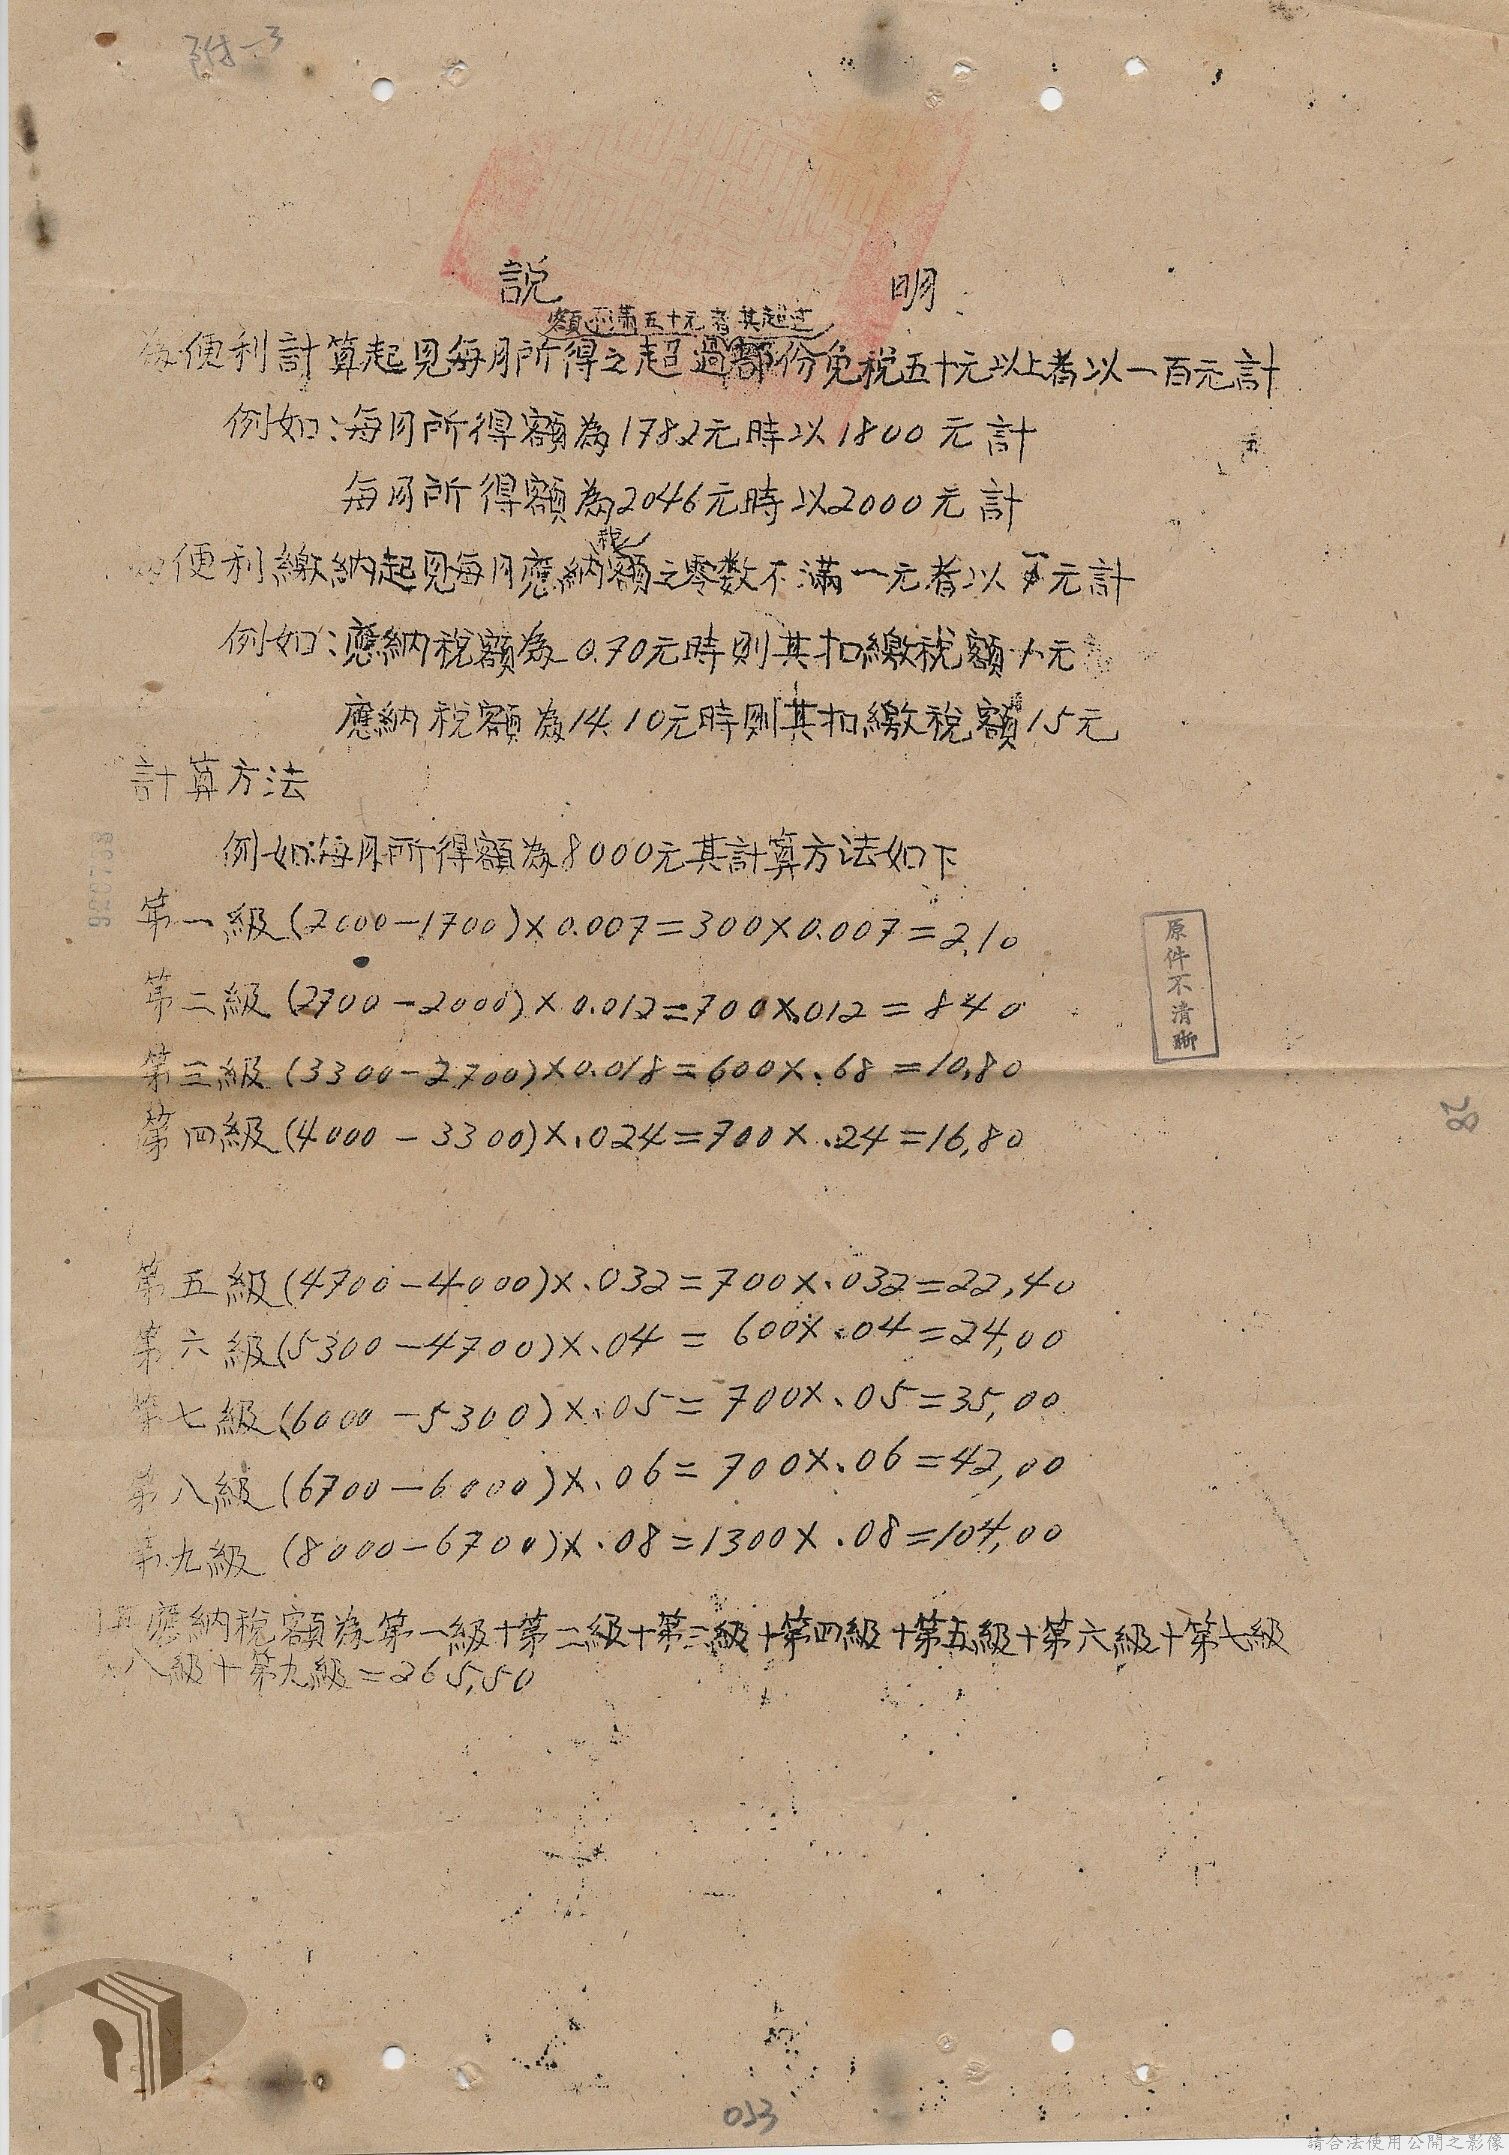 附一3
說明
額不滿五十元者其超過
為便利計算起見每月所得之超過部份免稅五十元以上者以一百元計
例如:每月所得額為1782元時以1800元計
每月所得額為2046元時以2000元計
稅
便利繳納起見每月應納額之零数不滿一元者以一元計
例如:應納稅額為0.70元時則其扣繳稅額 元
應納稅額為14.10元時則其扣繳稅額15元
計算方法
例如:每月所得額為8000元其計算方法如下
第一級(2000-1700)×0.007=300×0.007=2.10
第二級(2700-2000)×0.012=700×.012=840
第三級(3300-2700)×0.018=600×.68=10.80
第四級(4000-3300)×.024=700×.24=16,80
第五級(4700-4000)×.032=700×.032=22,40
第六級(5300-4700)×.04=600×.04=24,00
第七級(6000-5300)×.05=700×.05=35,00
第八級(6700-6000)×.06=700×.06=42,00
第九級(8000-6700)×.08=1300×.08=104,00
應納稅額為第一級+第二級+第三級+第四級+第五級+第六級+第七級
八級+第九級=265,50
原件不清晰
023
請合法使用公開之影像